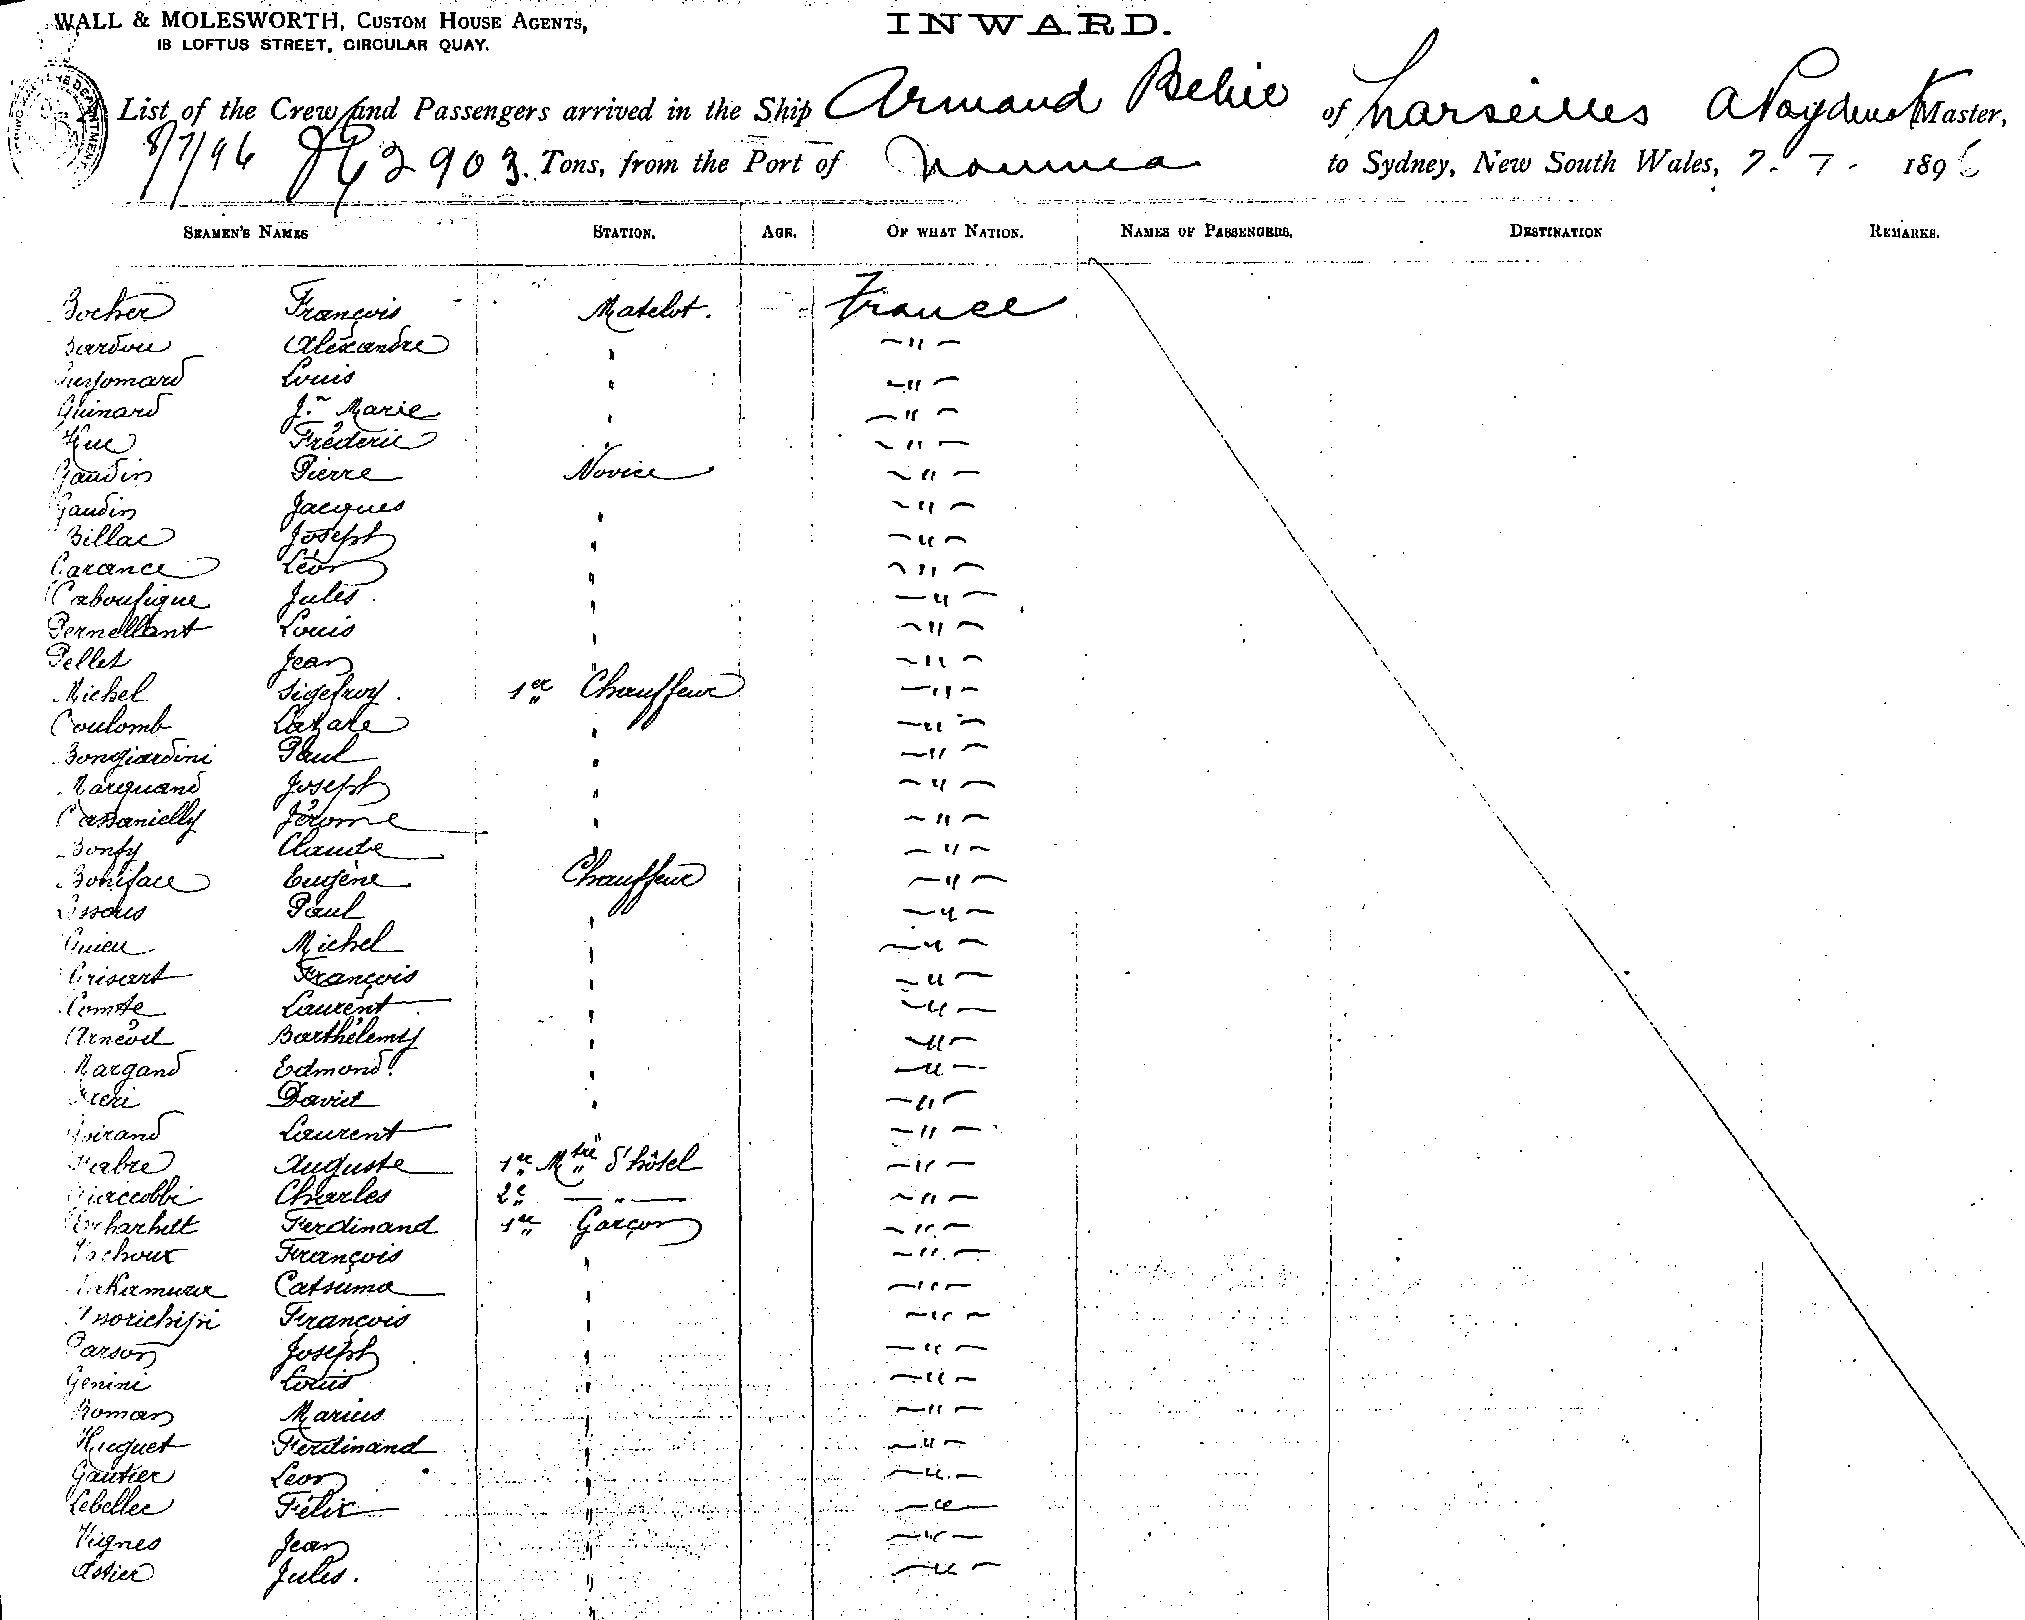 WALL & MOLESWORTH, CUSTOM HOUSE AGENTS,
18 LOFTUS STREET, CIRCULAR QUAY.
INWARD.
List of the Crew and Passengers arrived in the Ship Armand Behic of Marseilles Master,
8/7/96 2903. Tons, from the Port of Noumea to Sydney, New South Wales, 7. 7. 1896
SEAMEN'S NAMES STATION. AGE. OF WHAT NATION. NAMES OF PASSENGERS. DESTINATION REMARKS.
Bocher François Matelot. France
Bardou Alexandre " "
Louis " "
Guinard Jn Marie " "
Hue Fréderic " "
Gaudin Pierre Novice "
Gaudin Jacques " "
Billac Joseph " "
Carance Léon " "
Caboufigue Jules " "
Pernellant Louis " "
Pellet Jean " "
Michel Sigefroy 1er Chauffeur "
Coulomb Lazare " "
Bongiardini Paul " "
Marquand Joseph " "
Cassanielly Jérome " "
Bonfy Claude " "
Boniface Eugène Chauffeur "
Paul " "
Guieu Michel " "
Crisart François " "
Comte Laurent " "
Arnéod Barthélemy " "
Margand Edmond " "
David " "
Laurent " "
Fabre Auguste 1er Mtre d'hôtel "
Charles 2e " "
Ferdinand 1er Garçon "
Vachoux François " "
Nakamura Catsuma " "
François " "
Carson Joseph " "
Genini Louis " "
Roman Marius " "
Huguet Ferdinand " "
Gautier Leon " "
Lebellec Félix " "
Vignes Jean " "
Astier Jules. " "